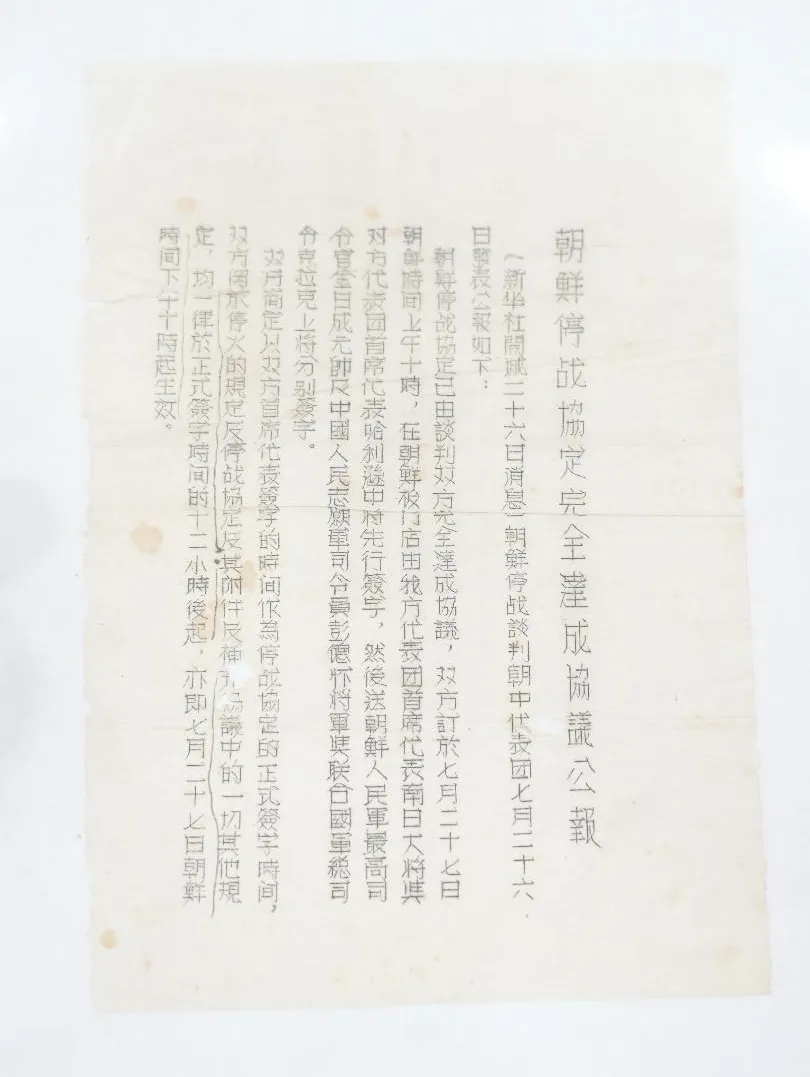 朝鮮停战協定完全達成協議公報
（新华社開城二十六日消息）朝鮮停战談判朝中代表团七月二十六
日發表公報如下：
朝鮮停战協定已由談判双方完全達成協議，双方訂於七月二十七日
朝鮮時间上午十時，在朝鮮板门店由我方代表团首席代表南日大將與
对方代表团首席代表哈利遜中將先行簽字，然後送朝鮮人民軍最高司
令官金日成元帥及中國人民志願軍司令員彭德怀將軍與联合國軍總司
令克拉克上將分别簽字。
双方商定以双方首席代表簽字的時间作為停战協定的正式簽字時间，
双方関於停火的規定及停战協定及其附件及補充協議中的一切其他規
定，均一律於正式簽字時间的十二小時後起，亦即七月二十七日朝鮮
時间下午十時起生效。